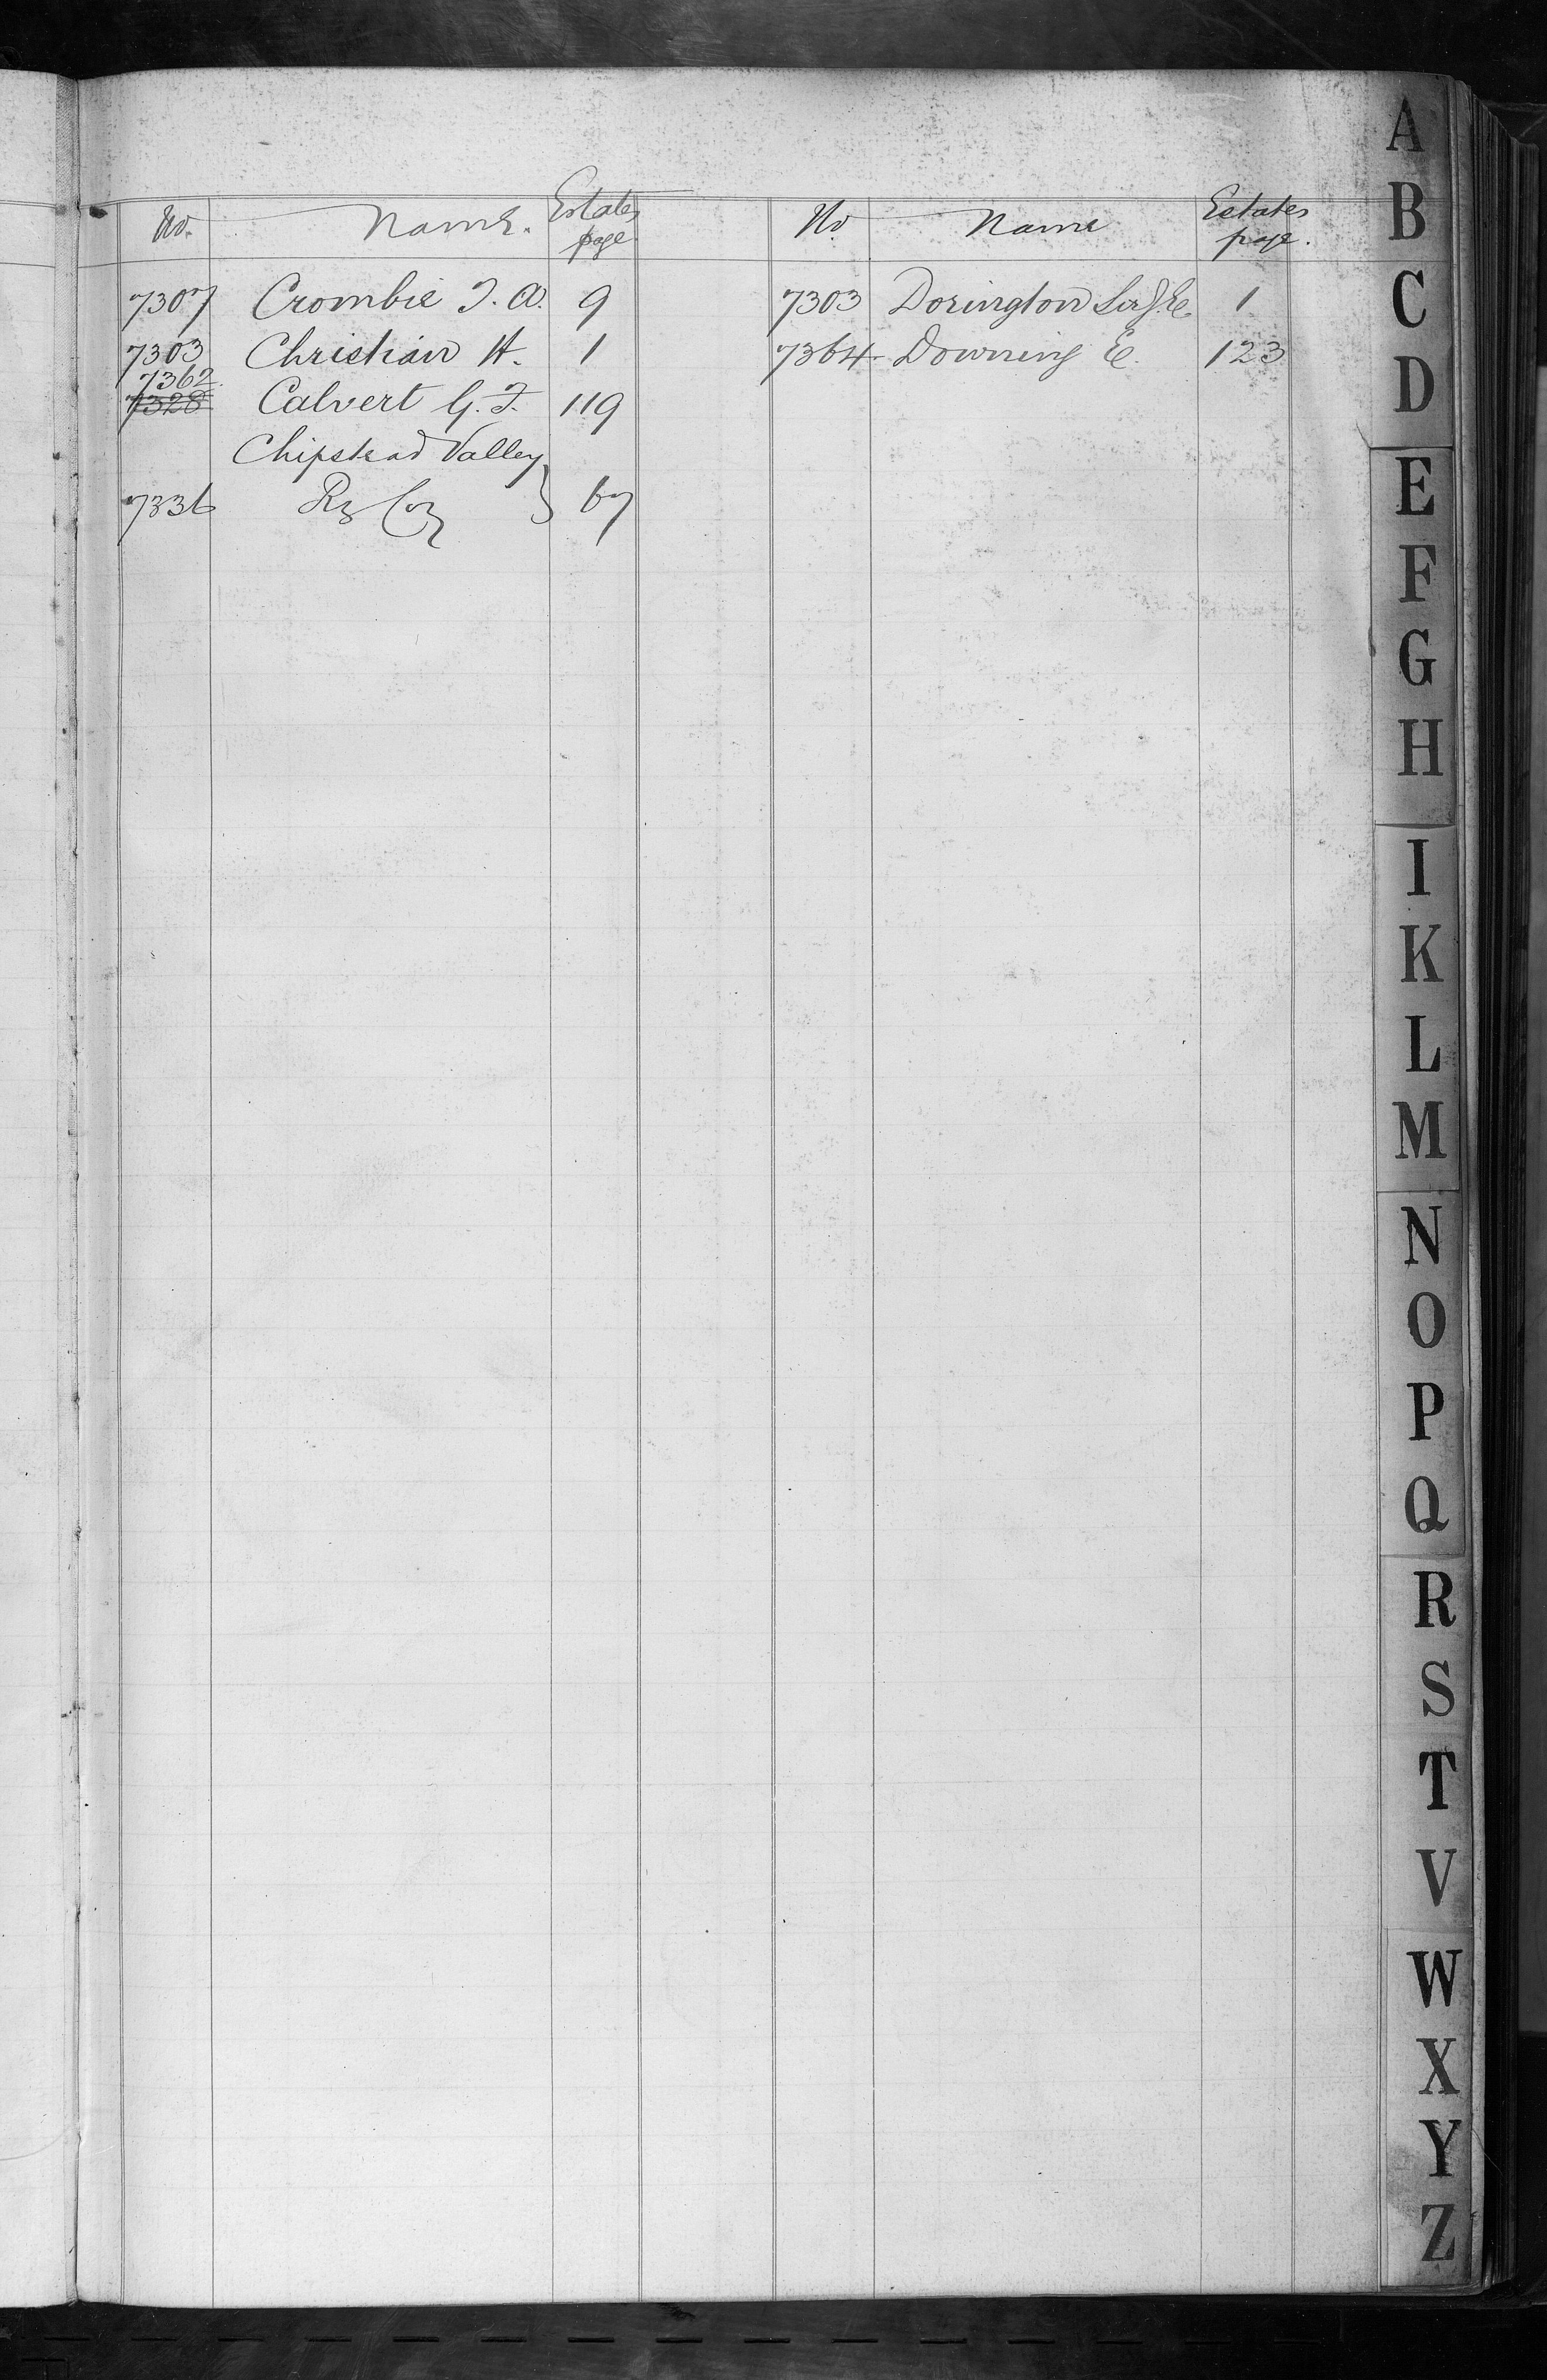 No. Name. Estates page
7307 Crombie J. A. 9
7303 Christian H. 1
7362
7328 Calvert G. F. 119
Chipstead Valley
7336 Ry Coy } 67
No Name Estates page.
7303 Dorington Sir J. E. 1
7364 Downing E. 123
A
B
C
D
E
F
G
H
I
K
L
M
N
O
P
Q
R
S
T
V
W
X
Y
Z